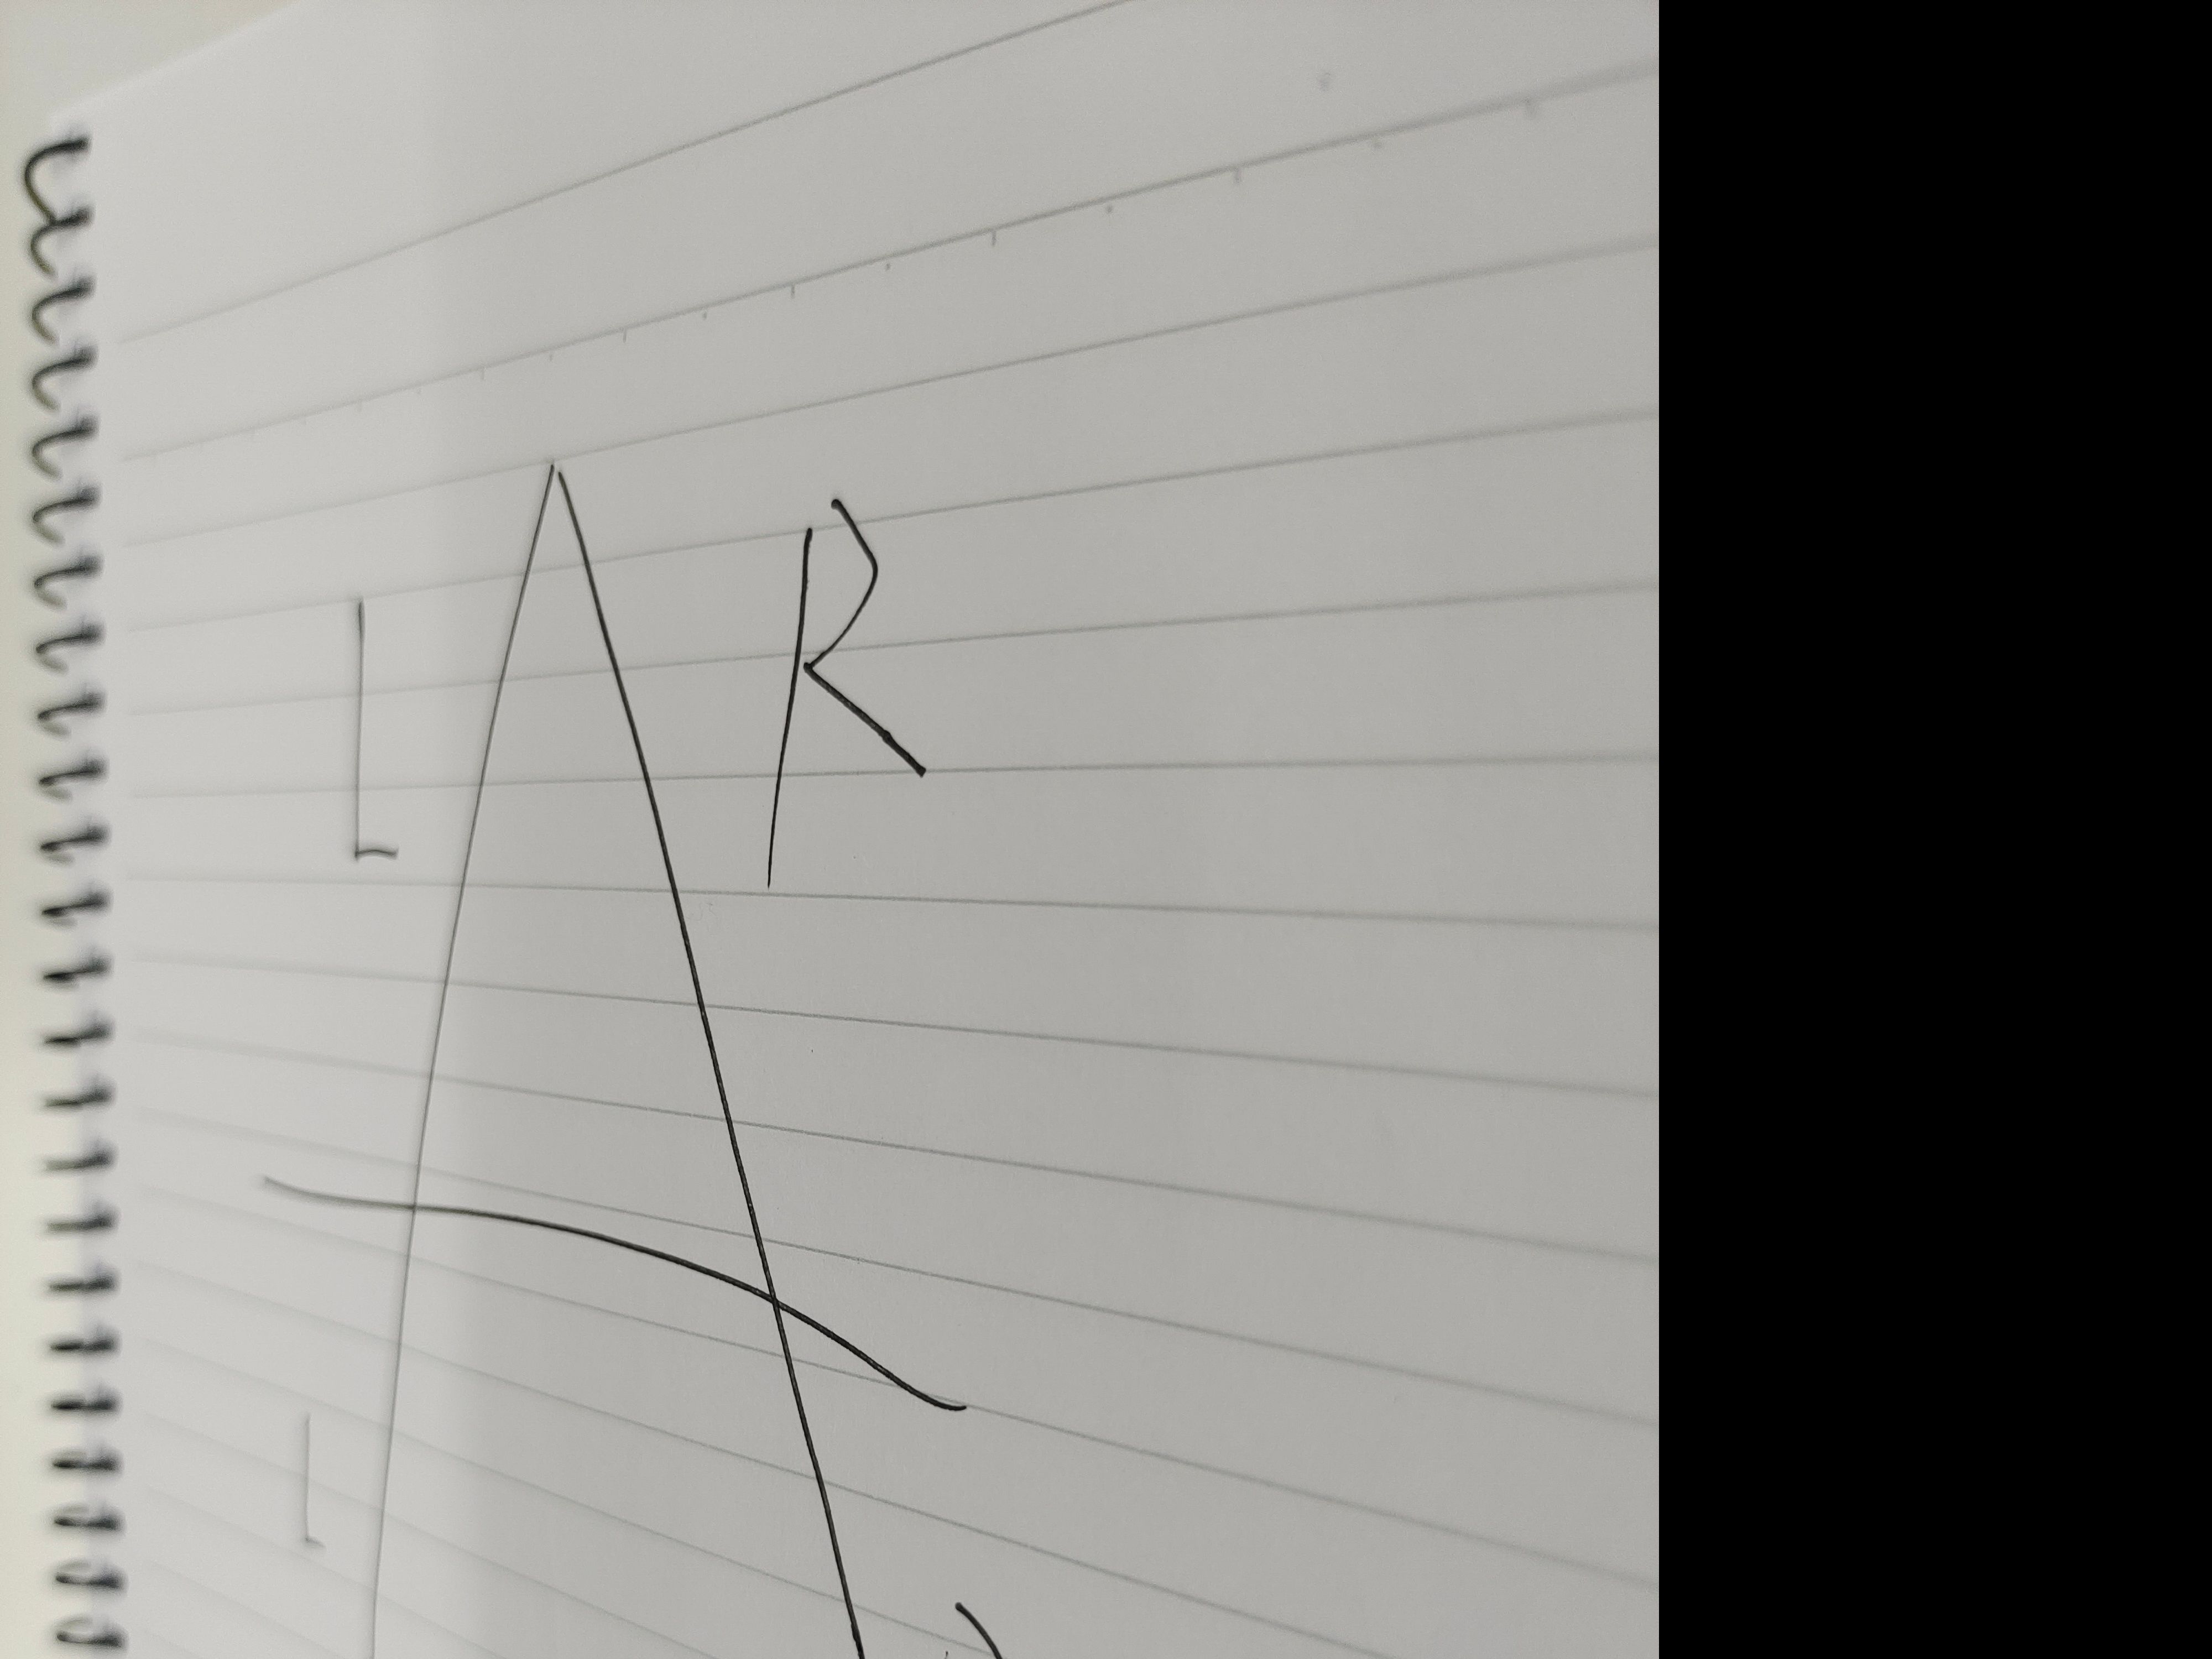 L R
L